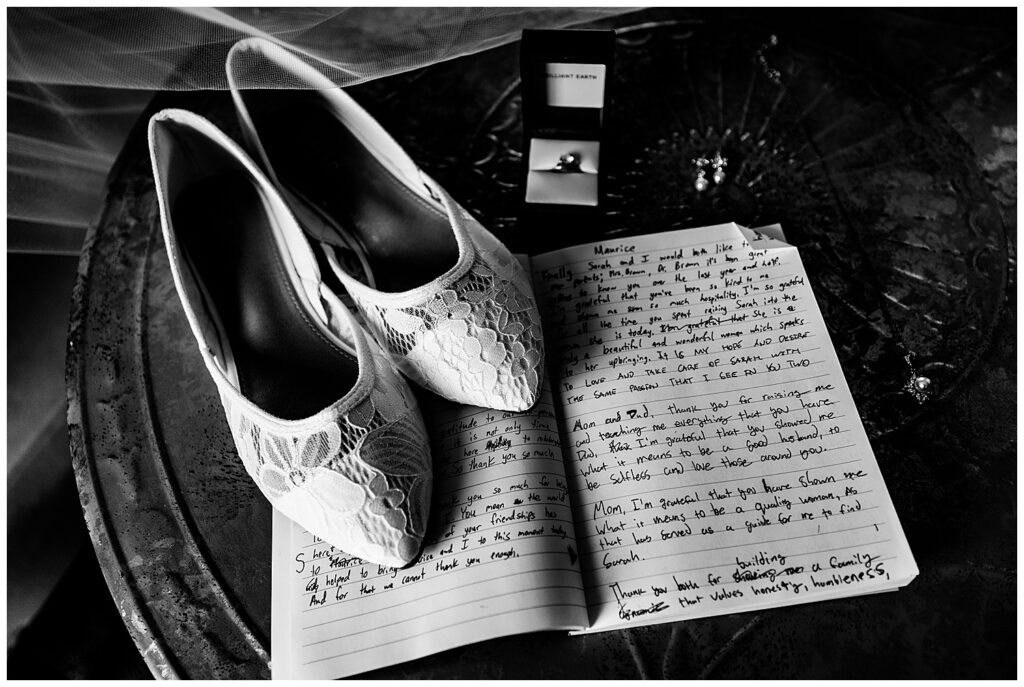 BRILLIANT EARTH
Maurice
Finally Sarah and I would both like to
our parents; Mrs. Brown, Dr. Brown it's been great
to know you over the last year and half.
grateful that you've been so kind to me
shown me so much hospitality. I'm so grateful
all the time you spent raising Sarah into the
she is today. I'm grateful that She is a
a beautiful and wonderful woman which speaks
to her upbringing. It Is MY HOPE AND DESIRE
TO LOVE AND TAKE CARE OF SARAH WITH
THE SAME PASSION THAT I SEE IN YOU TWO
Mom and Dad, thank you for raising me
and teaching me everything that you have
Dad, I'm grateful that you showed me
what it means to be a Good husband, to
be Selfless and love those around you.
Mom, I'm grateful that you have shown me
what is means to be a quality woman, As
that has served as a guide for me to find
Sarah.
building
Thank you both for a family
that values honesty, humbleness,
gratitude to our
it is not only time
here to
So thank you so much
you so much for
You mean the world
of your friendships has
helped to bring and I to this moment today
And for that we cannot thank you enough.